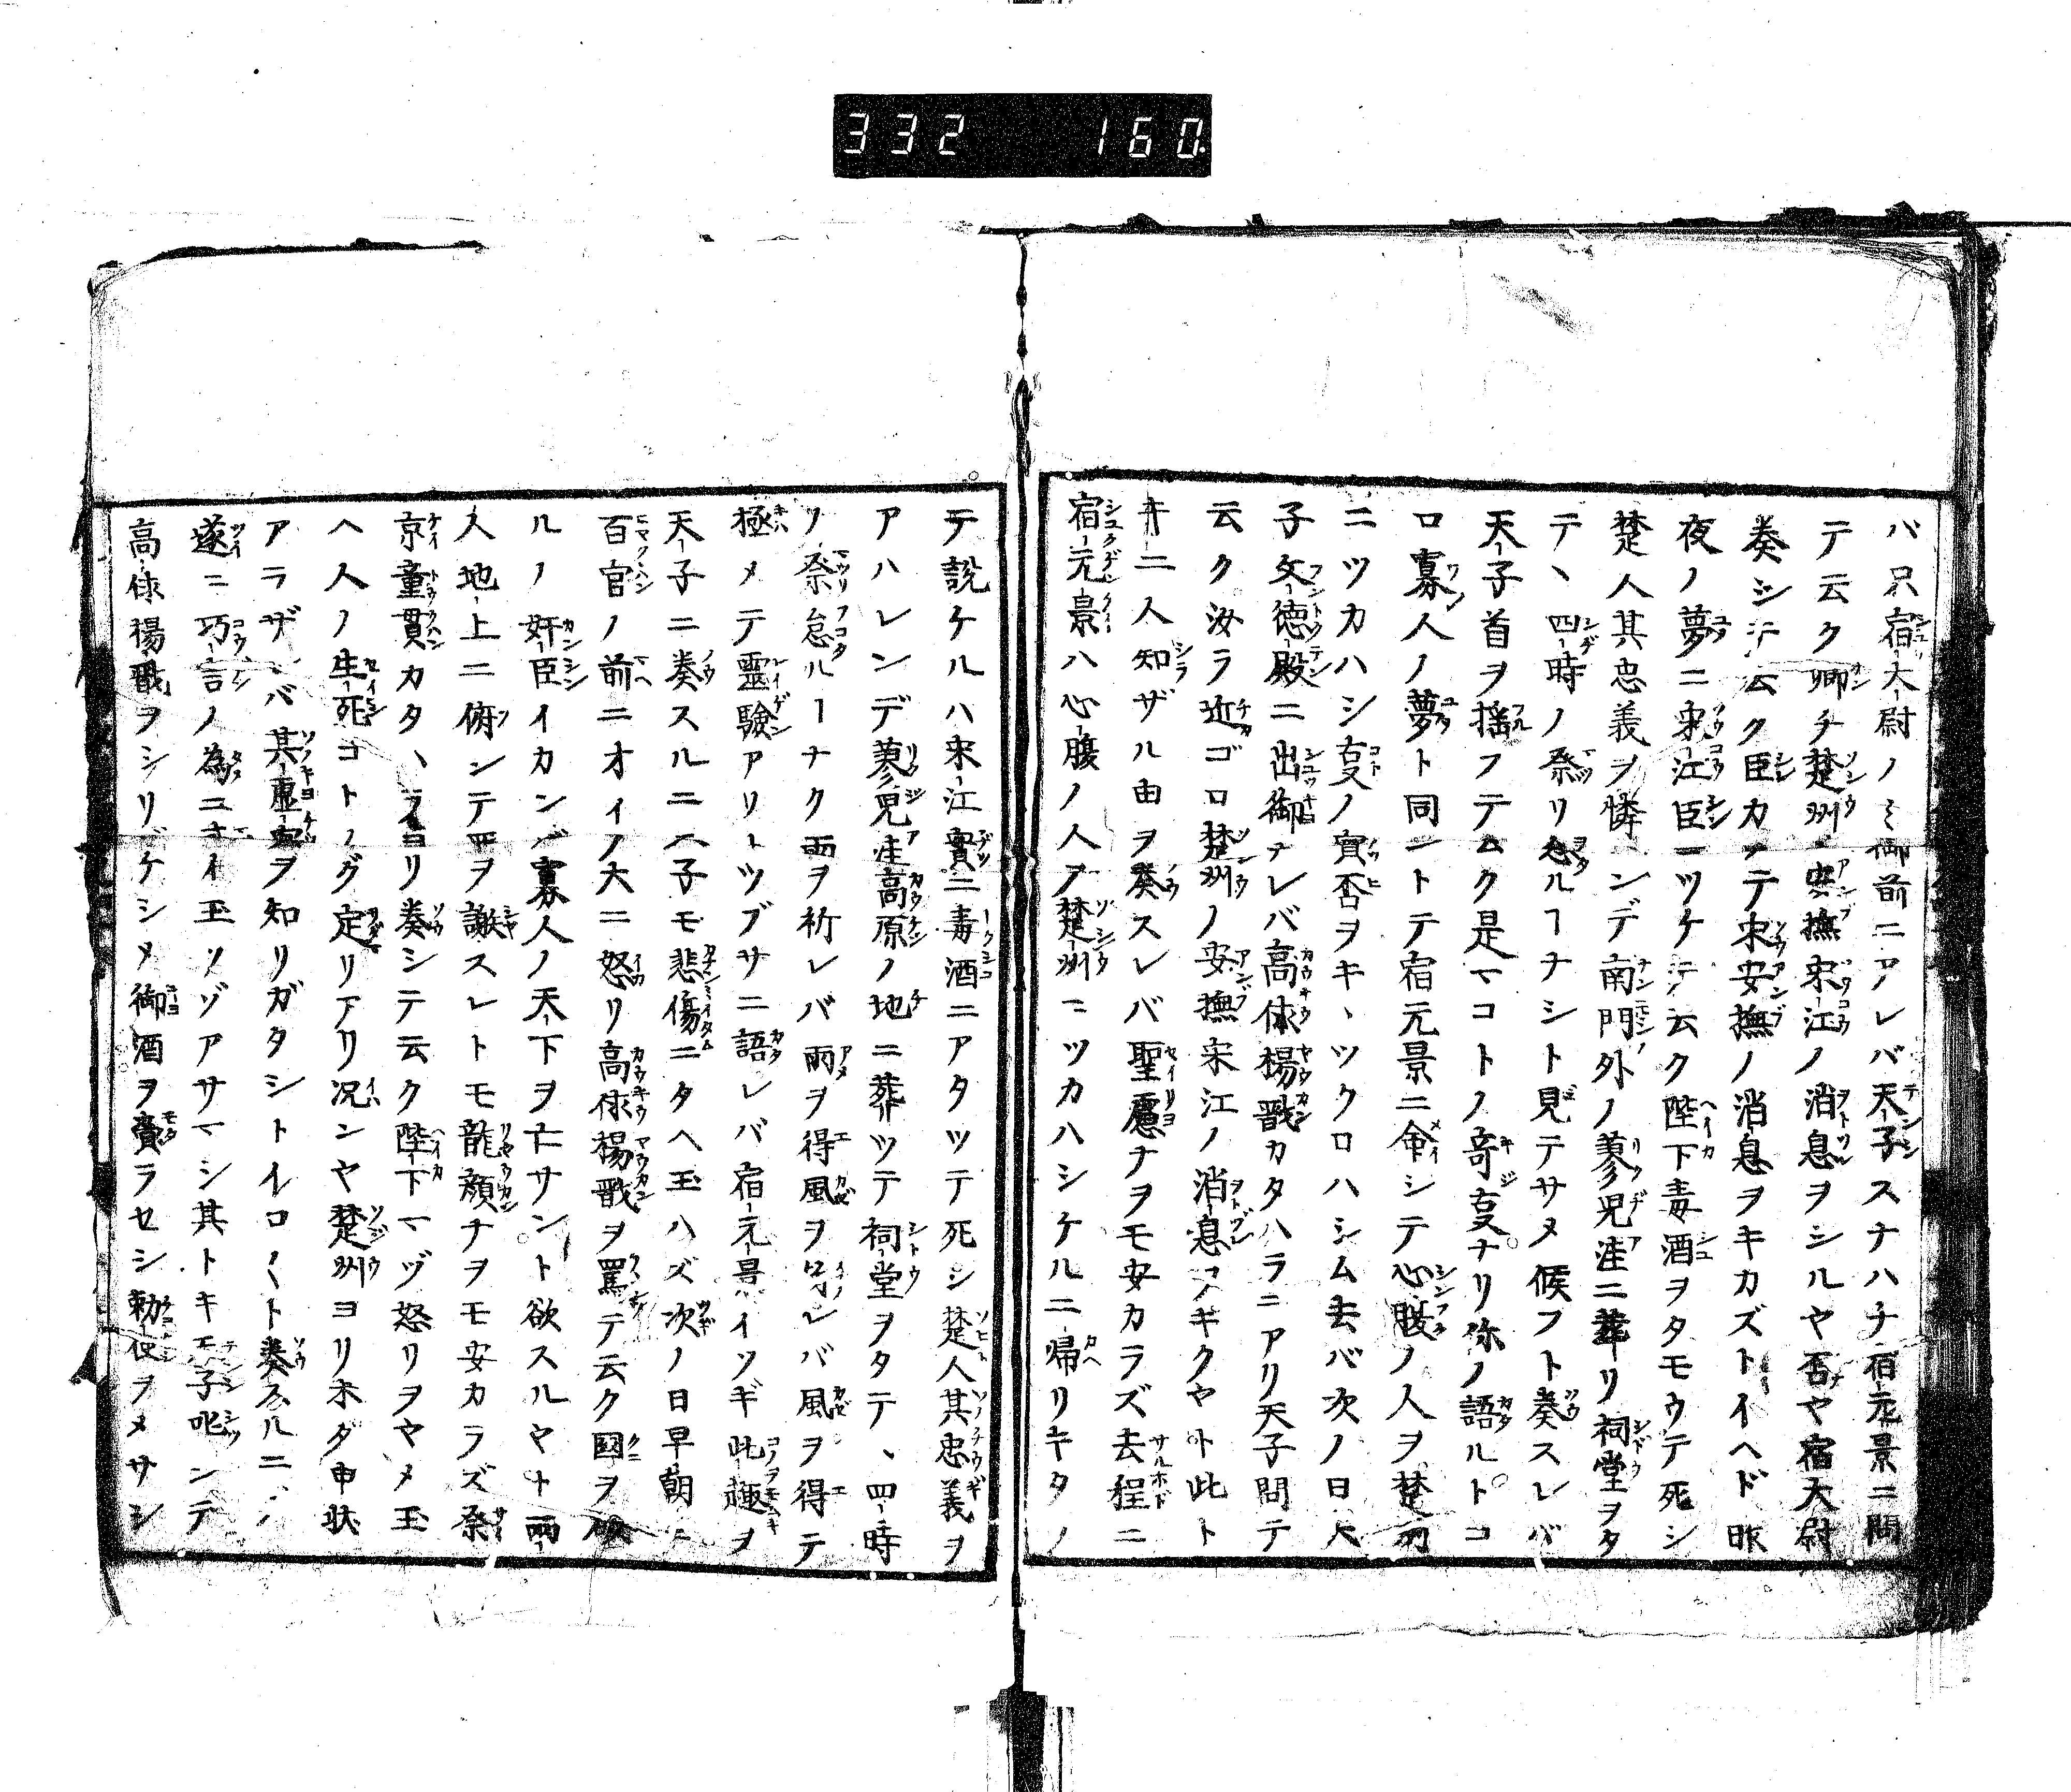 332 160
バ只宿太尉ノミ御前ニアレバ天子スナハチ宿元景ニ問
テ云ク卿チ楚州ノ安撫宋江ノ消息ヲシルヤ否ヤ宿太尉
奏シテ云ク臣カノテ宋安撫ノ消息ヲキカズトイヘド昨
夜ノ夢ニ宋江臣ニツケテ云ク陛下毒酒ヲタモウテ死シ
楚人其忠義ヲ憐ンデ南門外ノ蓼児洼ニ葬リ祠堂ヲタ
テヽ四時ノ祭リ怠ルヿナシト見テサメ候フト奏スレバ
天子首ヲ揺フテ云ク是マコトノ奇叓ナリ你ノ語ルトコ
ロ寡人ノ夢ト同シトテ宿元景ニ命シテ心腹ノ人ヲ楚州
ニツカハシ叓ノ實否ヲキヽツクロハシム去バ次ノ日天
子文徳殿ニ出御ナレバ高俅楊戩カタハラニアリ天子問テ
云ク汝ラ近ゴロ楚州ノ安撫宋江ノ消息ヲキクヤト此ト
キ二人知ザル由ヲ奏スレバ聖慮ナヲモ安カラズ去程ニ
宿元景ハ心腹ノ人ヲ楚州ニツカハシケルニ帰リキタノ
テ説ケルハ宋江實ニ毒酒ニアタツテ死シ楚人其忠義ヲ
アハレンデ蓼児洼高原ノ地ニ葬ツテ祠堂ヲタテヽ四時
ノ祭怠ルヿナク雨ヲ祈レバ雨ヲ得風ヲ祈レバ風ヲ得テ
極メテ靈験アリトツブサニ語レバ宿元景イソギ此趣ヲ
天子ニ奏スルニ天子モ悲傷ニタヘ玉ハズ次ノ日早朝ニ
百官ノ前ニオイノ大ニ怒リ高俅楊戩ヲ罵テ云ク國ヲ敗
ルノ奸臣イカンゾ寡人ノ天下ヲ亡サント欲スルヤト両
人地上ニ俯シテ罪ヲ謝スレトモ龍顔ナヲモ安カラズ蔡
京童貫カタヽラヨリ奏シテ云ク陛下マヅ怒リヲヤメ玉
ヘ人ノ生死コトノグ定リアリ况ンヤ楚州ヨリ未ダ申状
アラザレバ其虚実ヲ知リガタシトイロ〱ト奏スルニゾ
遂ニ巧言ノ為ニナイ玉ソゾアサマシ其トキ天子叱ンテ
高俅楊戩ヲシリゾケシメ御酒ヲ賫ラセシ勅使ヲメサシ